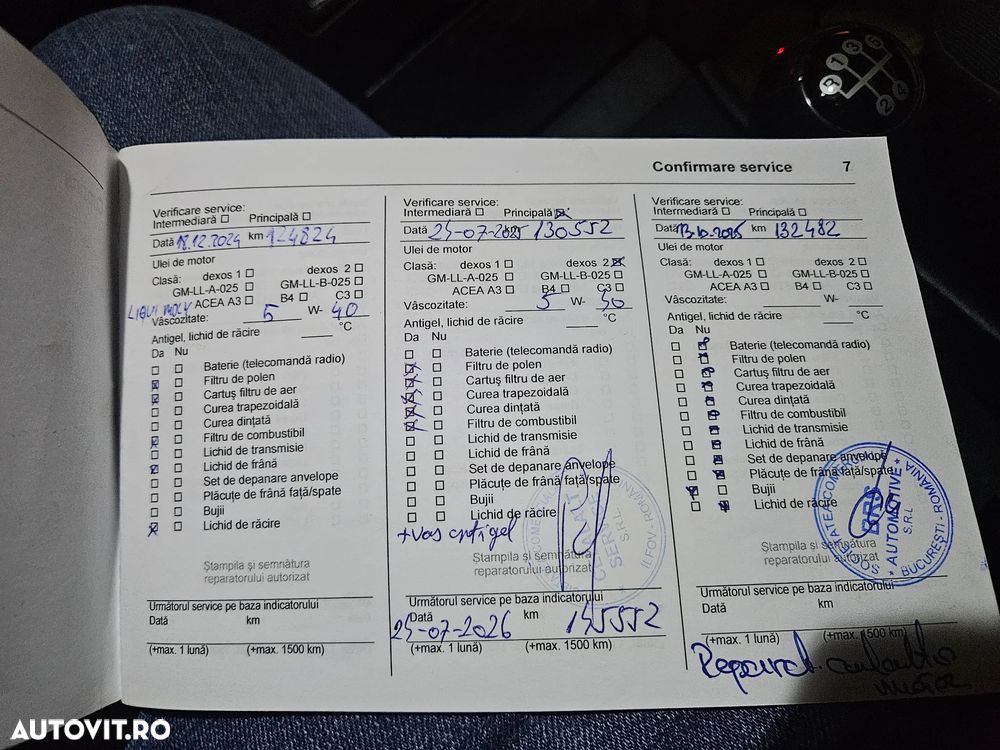 Confirmare service 7
Verificare service:
Intermediară Principală
Dată 18.12.2024 km 124824
Ulei de motor
Clasă: dexos 1 dexos 2
GM-LL-A-025 GM-LL-B-025
ACEA A3 B4 C3
LIQUI MOLY
Vâscozitate: 5 W- 40
Antigel, lichid de răcire °C
Da Nu
Baterie (telecomandă radio)
Filtru de polen
Cartuş filtru de aer
Curea trapezoidală
Curea dinţată
Filtru de combustibil
Lichid de transmisie
Lichid de frână
Set de depanare anvelope
Plăcuţe de frână faţă/spate
Bujii
Lichid de răcire
Ştampila şi semnătura
reparatorului autorizat
Următorul service pe baza indicatorului
Dată km
(+max. 1 lună) (+max. 1500 km)
Verificare service:
Intermediară Principală
Dată 25-07-2025 130552
Ulei de motor
Clasă: dexos 1 dexos 2
GM-LL-A-025 GM-LL-B-025
ACEA A3 B4 C3
Vâscozitate: 5 W- 30
Antigel, lichid de răcire °C
Da Nu
Baterie (telecomandă radio)
Filtru de polen
Cartuş filtru de aer
Curea trapezoidală
Curea dinţată
Filtru de combustibil
Lichid de transmisie
Lichid de frână
Set de depanare anvelope
Plăcuţe de frână faţă/spate
Bujii
Lichid de răcire
+vas antigel
SERVICE
S.R.L.
ILFOV - ROMÂNIA
Ştampila şi semnătura
reparatorului autorizat
Următorul service pe baza indicatorului
Dată km
25-07-2026 145552
(+max. 1 lună) (+max. 1500 km)
Verificare service:
Intermediară Principală
Dată 13.10.2025 km 132482
Ulei de motor
Clasă: dexos 1 dexos 2
GM-LL-A-025 GM-LL-B-025
ACEA A3 B4 C3
Vâscozitate: W-
Antigel, lichid de răcire °C
Da Nu
Baterie (telecomandă radio)
Filtru de polen
Cartuş filtru de aer
Curea trapezoidală
Curea dinţată
Filtru de combustibil
Lichid de transmisie
Lichid de frână
Set de depanare anvelope
Plăcuţe de frână faţă/spate
Bujii
Lichid de răcire
SOCIETATE COMERCIALĂ
BRD
AUTOMOTIVE
S.R.L
BUCUREŞTI - ROMÂNIA
Ştampila şi semnătura
reparatorului autorizat
Următorul service pe baza indicatorului
Dată km
(+max. 1 lună) (+max. 1500 km)
motor
R 1 3 5
2 4
AUTOVIT.RO